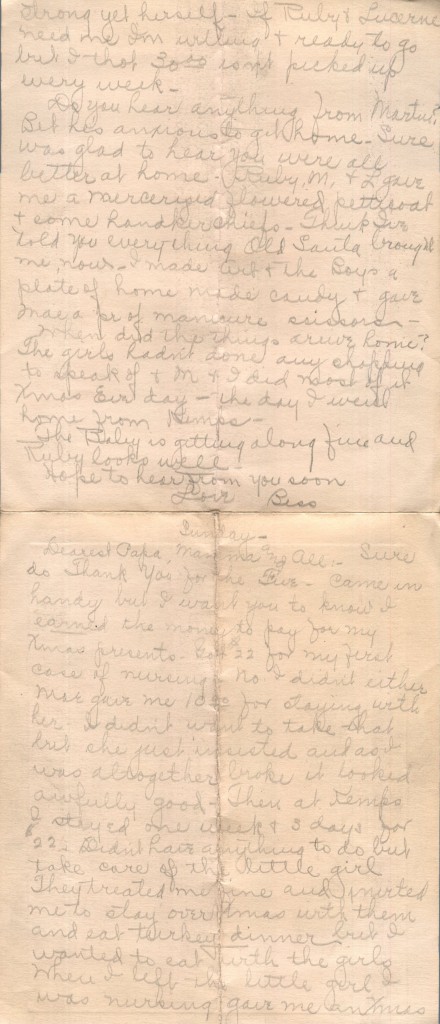 strong yet herself - If Ruby & Lucerne
need me I'm willing & ready to go
but I thot 30⁰⁰ isn't picked up
every week -
Do you hear anything from Martus?
Bet hes anxious to get home - Sure
was glad to hear you were all
better at home - Ruby, M, & L gave
me a mercerized flowered petticoat
& some handkerchiefs - Think I've
told you everything Old Santa brought
me, now - I made & the Boys a
plate of home made candy & gave
Mae a pr of manicure scissors -
When did the things arrive home?
The girls hadn't done any shopping
to speak of & M & I did most of it
Xmas Eve day - the day I went
home from Kemps -
The Baby is getting along fine and
Ruby looks well -
Hope to hear from you soon
Love Bess
Sunday -
Dearest Papa, Mamma and All:- Sure
do Thank You for the Five - Came in
handy but I want you to know I
earned the money to pay for my
Xmas presents - 22 for my first
case of nursing - No I didn't either
Mae gave me 10⁰⁰ for staying with
her. I didn't want to take that
but she just insisted and as I
was altogether broke it looked
awfully good - Then at Kemps
I stayed one week & 3 days for
$22 - Didn't have anything to do but
take care of the little girl
They treated me fine and invited
me to stay over Xmas with them
and eat turkey dinner but I
wanted to eat with the girls
When I left the little girl I
was nursing gave me an Xmas